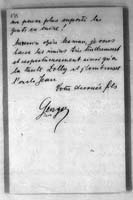 ne peux plus supporter les
Au revoir chère Maman, je vous
baise les mains très tendrement
et respectueusement ainsi qu'à
la tante Dolly et j'embrasse
l'oncle Jean
Votre dévoué fils
Georges